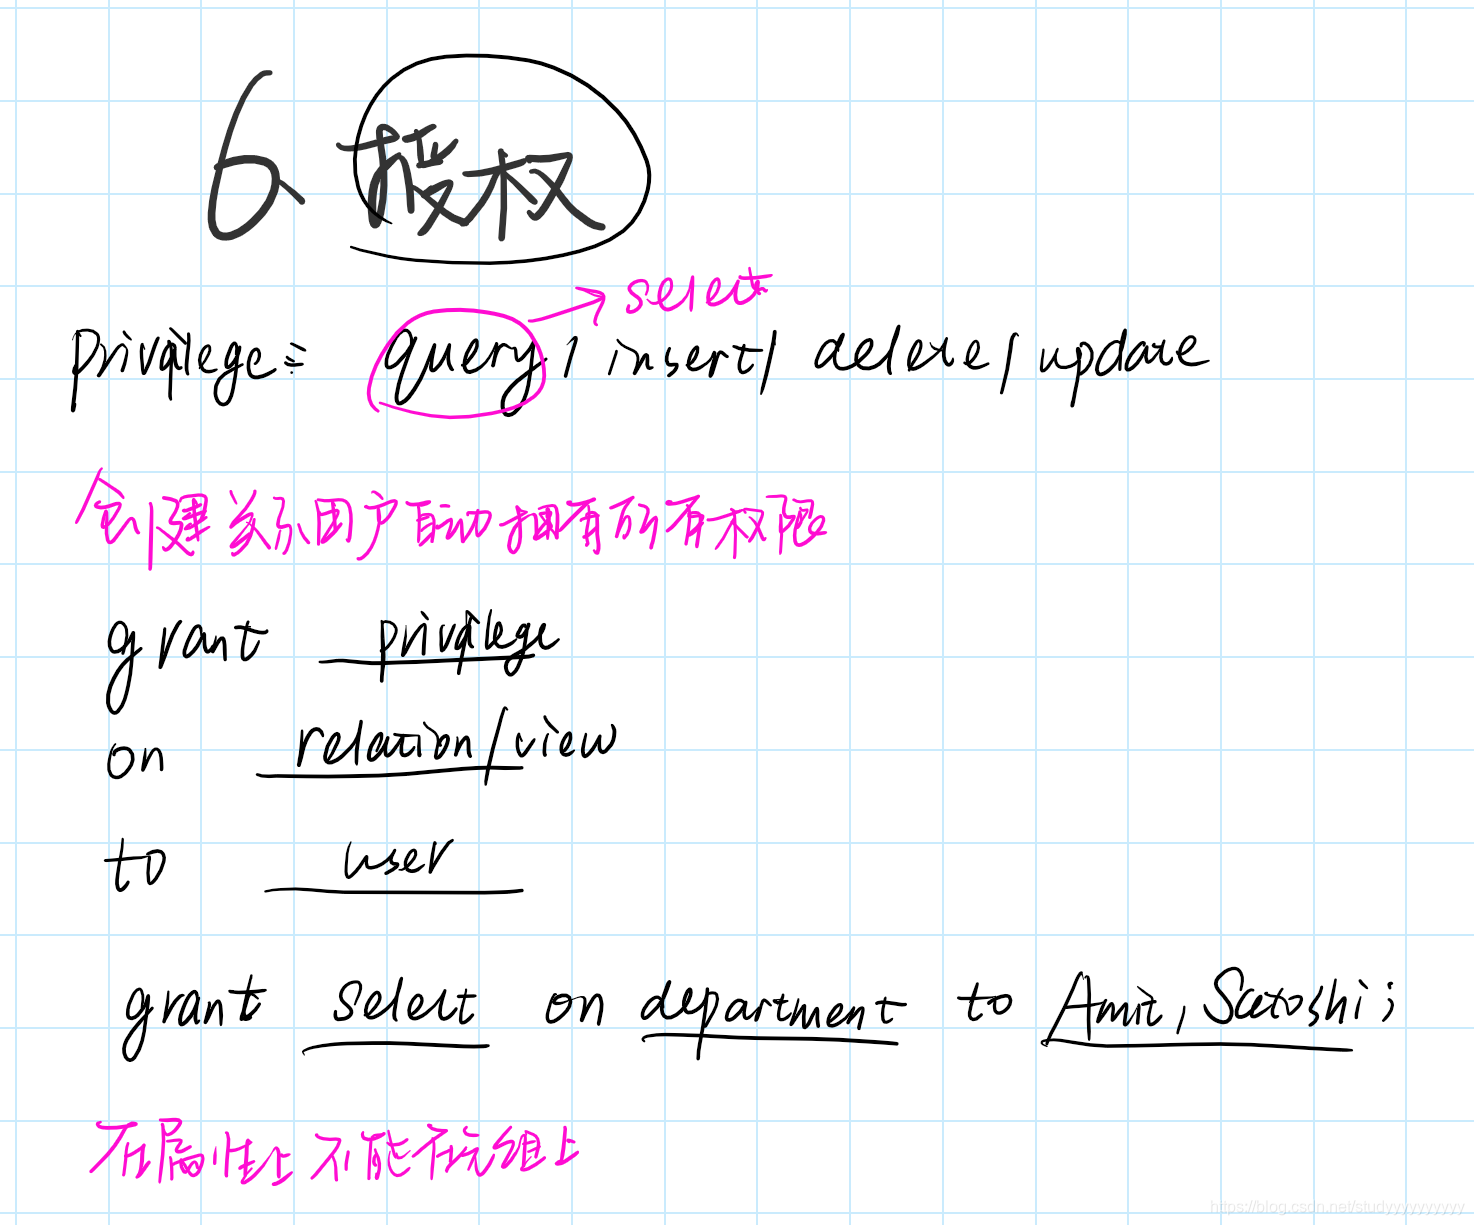 6、授权
→ select
privilege = query / insert / delete / update
创建关系用户自动拥有所有权限
grant privilege
on relation/view
to user
grant select on department to Amit, Satoshi;
在属性上 不能在元组上
https://blog.csdn.net/studyyyyyyyyyy